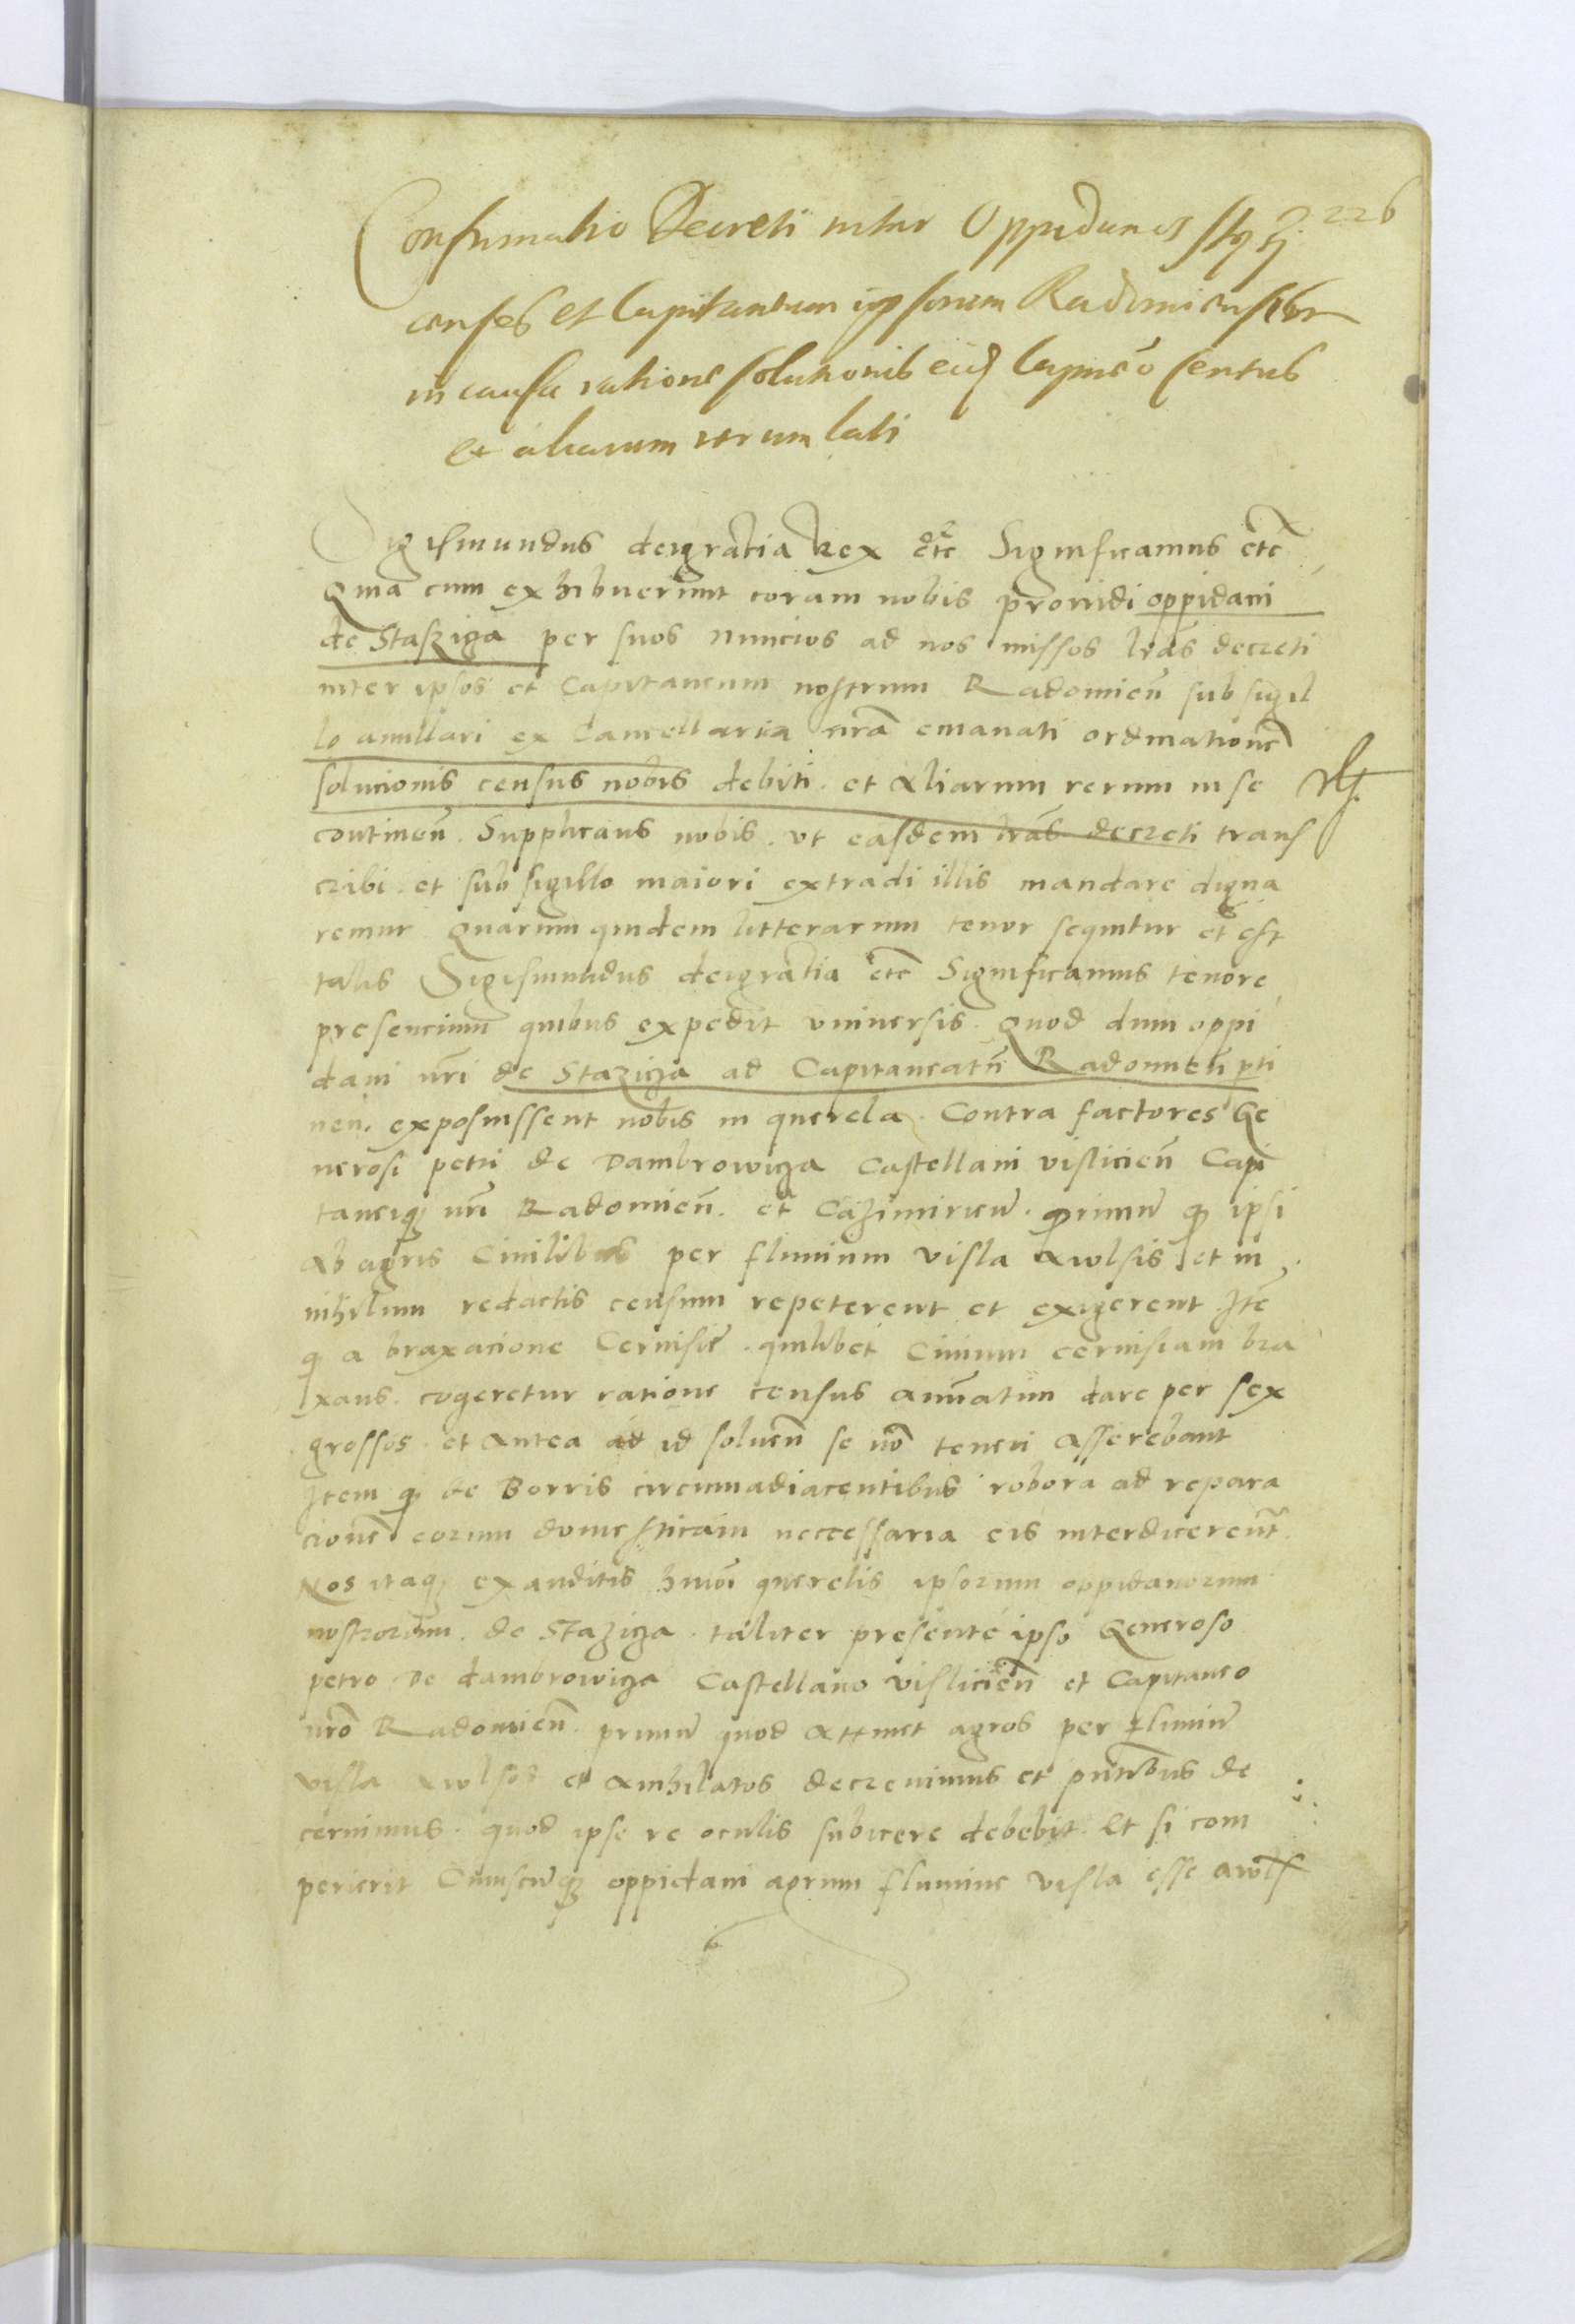 226
Confirmatio Decreti inter Oppidanos
censes et Capitaneum ipsorum Radomiensem
in causa ratione solutionis eid Capneo census
et aliarum rerum lati
Sigismundus dei gratia Rex etc Significamus etc
Quia cum exhibuerunt coram nobis providi oppidani
de Stasziga per suos nuncios ad nos missos lras decreti
inter ipsos et Capitaneum nostrum Radomien sub sigil
lo anullari ex Cancellaria nra emanati ordinatione
solucionis census nobis debiti . et aliarum rerum in se
continen . Supplicans nobis . ut easdem lras decreti trans
cribi . et sub sigillo maiori extradi illis mandare digna
remur Quarum quidem litterarum tenor sequitur et est
talis Sigismundus dei gratia etc Significamus tenore
presencium quibus expedit universis . Quod dum oppi
dani nri de Staziga ad Capitaneatu Radomien pti
nen . exposuissent nobis in querela . Contra factores Ge
nerosi petri de Dambrowiga Castellani vislicien Capi
taneiq nri Radomien . et Cazimirien . primu q ipsi
ab agris Civilibus per fluvium visla avolsis et in
nihilum redactis censum repeterent et exigerent Ite
q a braxacione Cervisie . quilibet Civium cervisiam bra
xans cogeretur ratione census annuatim dare per sex
grossos . et antea ad id solven se no teneri asserebant
Item q de Borris circumadiacentibus robora ad repara
cione eorum domesticam neccessaria eis interdicerent .
Nos itaq exauditis hmoi querelis ipsorum oppidanorum
nostrorum . de Staziga . taliter presente ipso Generoso
petro de dambrowiga Castellano vislicien et Capitaneo
nro Radomien . primu quod attinet agros per fluviu
visla avolsos et anihilatos decrevimus et pntibus de
cernimus . quod ipse re oculis subicere debebit . Et si com
perierit Cuiuscuq oppidani agrum fluvius visla esse avols